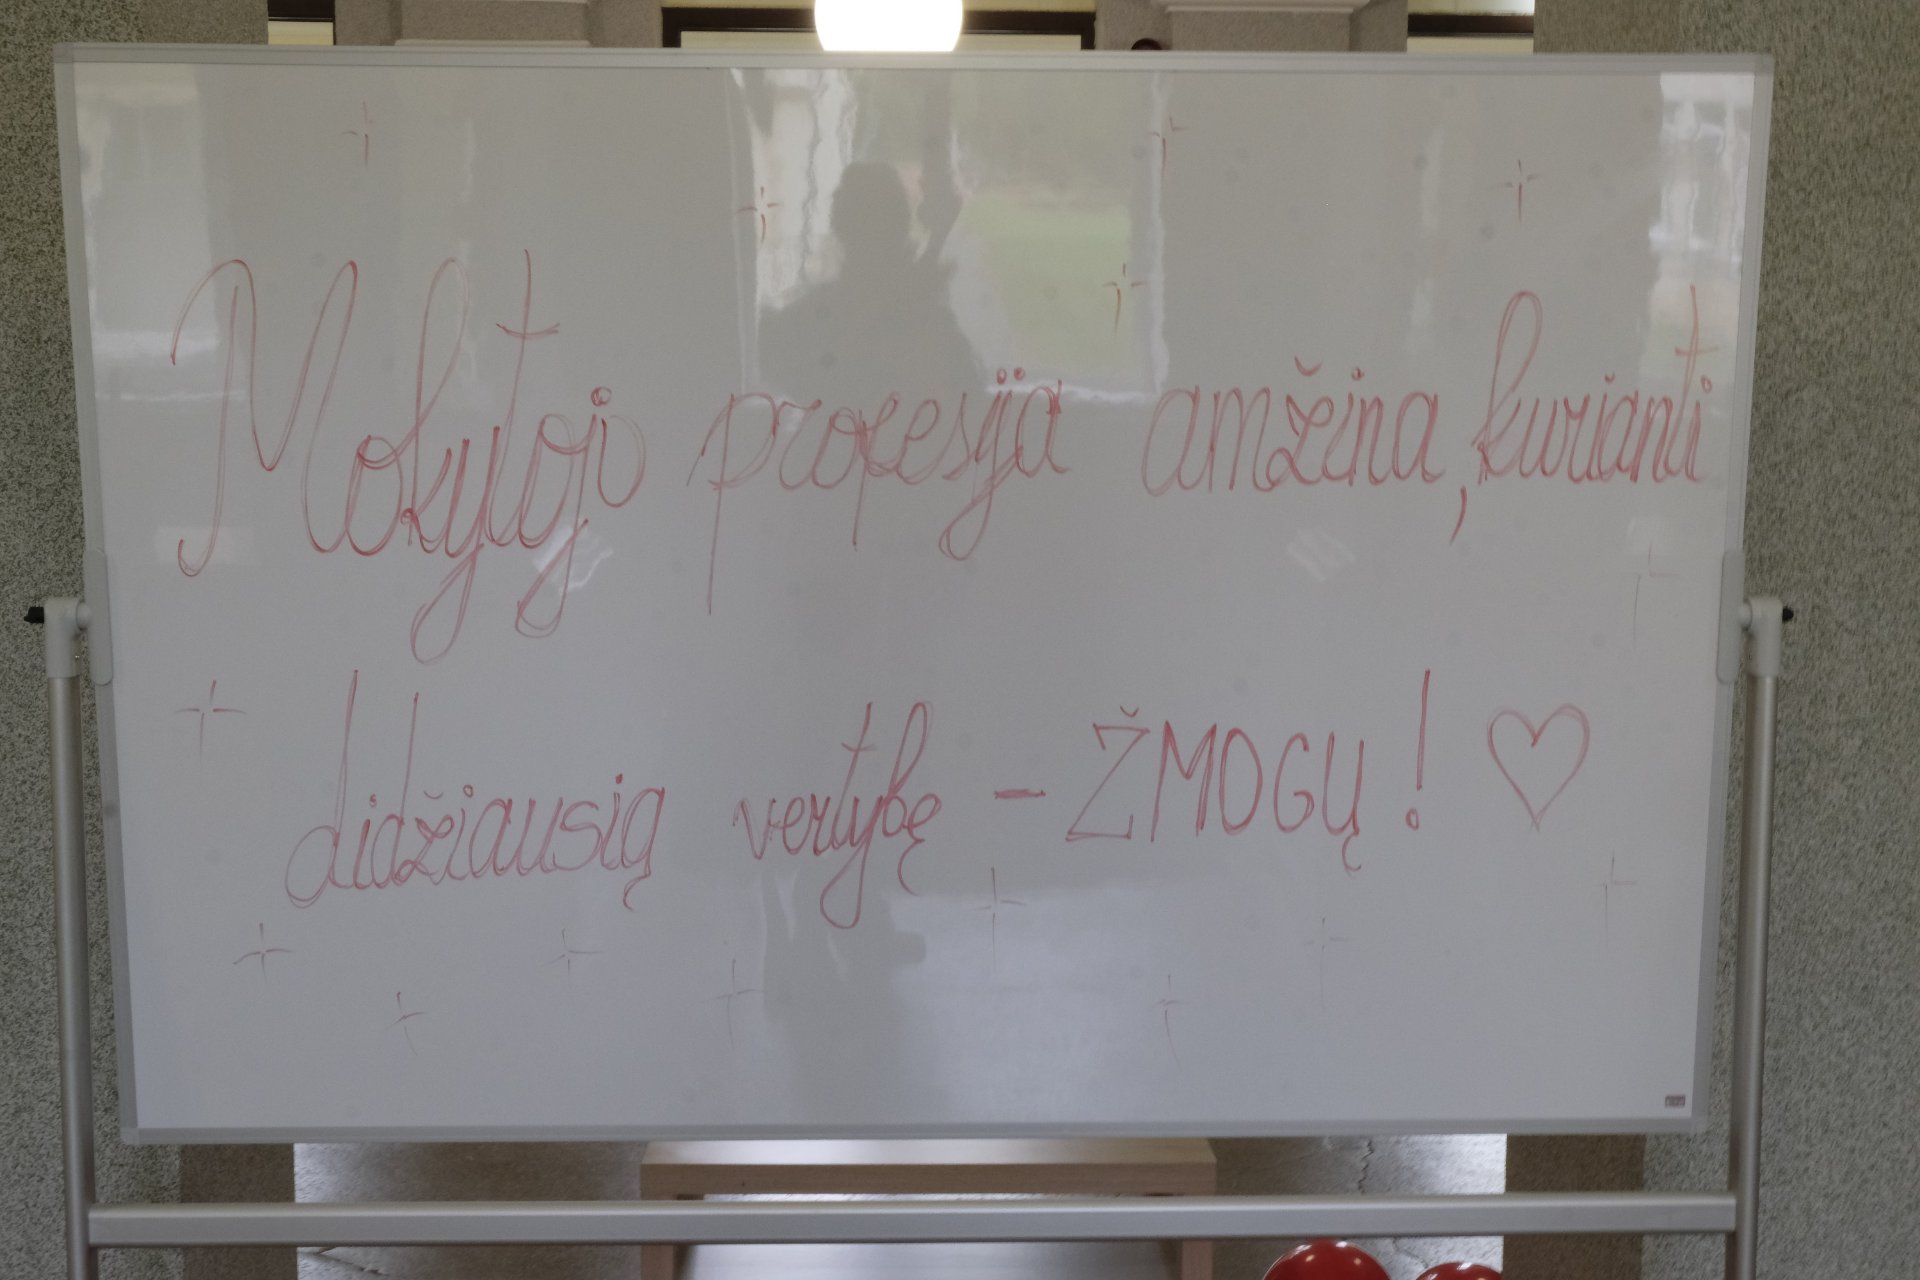 Mokytojo profesija amžina, kurianti
didžiausią vertybę - ŽMOGŲ! ♡